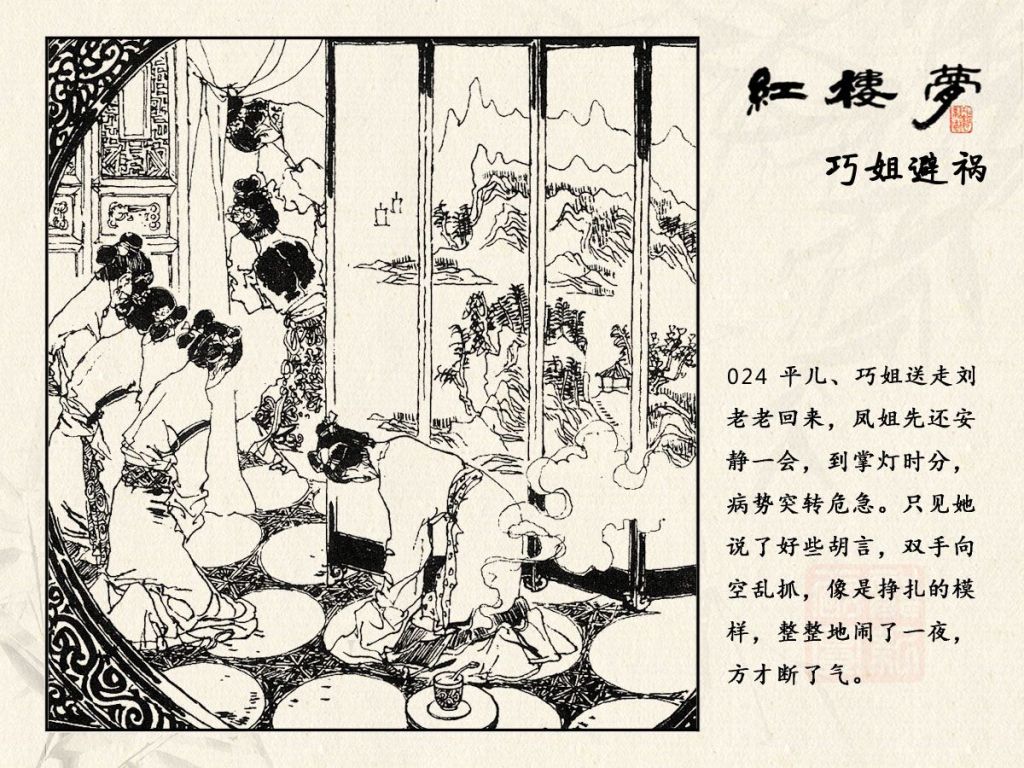 紅樓夢
巧姐避祸
024 平儿、巧姐送走刘
老老回来，凤姐先还安
静一会，到掌灯时分，
病势突转危急。只见她
说了好些胡言，双手向
空乱抓，像是挣扎的模
样，整整地闹了一夜，
方才断了气。